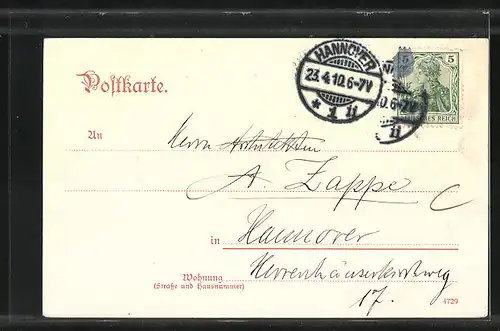 Postkarte.
HANNOVER
23.4.10.6-7V
* 1 ü
5 5
REICH
An
Herrn Architekten
A. Zappe
in Hannover
Wohnung
(Straße und Hausnummer)
Herrenhäuserkirchweg
17.
4729